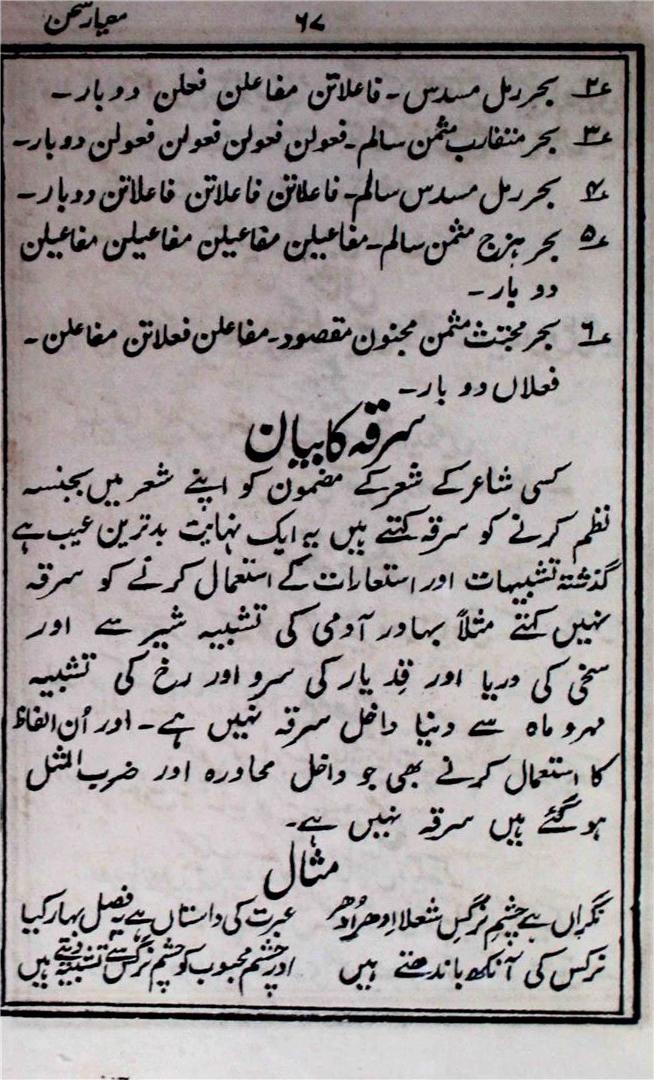 معیار سخن ۶۷
۲ بحر رمل مسدس ۔ فاعلاتن مفاعلن فعلن دو بار ۔
۳ بحر متقارب مثمن سالم ۔ فعولن فعولن فعولن فعولن دو بار ۔
۴ بحر رمل مسدس سالم ۔ فاعلاتن فاعلاتن فاعلاتن دو بار ۔
۵ بحر ہزج مثمن سالم ۔ مفاعیلن مفاعیلن مفاعیلن مفاعیلن
دو بار ۔
۶ بحر مجتث مثمن مجنون مقصود ۔ مفاعلن فعلاتن مفاعلن ۔
فعلاں دو بار ۔
سرقہ کا بیان
کسی شاعر کے شعر کے مضمون کو اپنے شعر میں بجنسہ
نظم کرنے کو سرقہ کہتے ہیں یہ ایک نہایت بدترین عیب ہے
گذشتہ تشبیہات اور استعارات کے استعمال کرنے کو سرقہ
نہیں کہتے مثلاً بہادر آدمی کی تشبیہ شیر سے اور
سخی کی دریا اور قدِ یار کی سرو اور رخ کی تشبیہ
مہر و ماہ سے دینا داخل سرقہ نہیں ہے ۔ اور اُن الفاظ
کا استعمال کرنے بھی جو داخل محاورہ اور ضرب المثل
ہو گئے ہیں سرقہ نہیں ہے ۔
مثال
نگراں ہے چشمِ نرگسِ شعلا اِدھر اُدھر عبرت کی داستاں ہے یہ فصل بہار کیا
نرگس کی آنکھ باندھتے ہیں اور چشم محبوب کو چشم نرگس سے تشبیہ دیتے ہیں